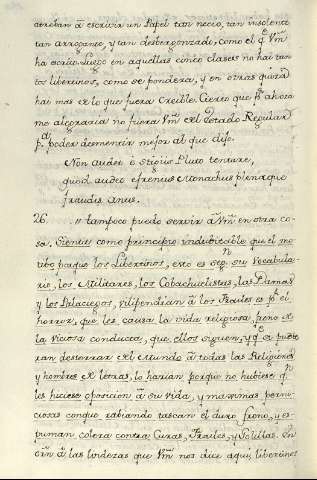 atreban â escrivir un Papel tan necio, tan insolente
tan arrogante, y tan desbergonzado, como el q.e Vm.
ha escrito. Luego en aquellas cinco clases no hai tan
tos libertinos, como se pondera, y en otras quiza
hai mas de lo que fuera creible. Cierto que p.r ahora
me alegraria no fuera Vm. del Estado Regular
p.a poder desmentir mejor al que dijo.
Non audet stigius Pluto tentare,
quod audet efrenus Monachus plenaque
fraudis anus.
26. Tampoco puedo servir â Vm. en otra co-
sa. Sienta como principio indubitable que el mo-
tibo porque los Libertinos, esto es seg.n su Vocabula-
rio, los Militares, los Cobachuelistas, las Damas
y los Palaciegos, vilipendian â los Frailes es p.r el
horror, que les causa la vida religiosa, freno de
la viciosa conducta, que ellos siguen, y q.e si pudie
ran desterrar del Mundo â todas las Religiones
y hombres de letras, lo harian porque no hubiese q.n
les hiciese oposicion â su vida, y maximas perni-
ciosas conque rabiando tascan el duro freno, y es-
puman colera contra Curas, Frailes, y Golillas. En
orn. â las lindezas que Vm. nos dice aqui, libertinos